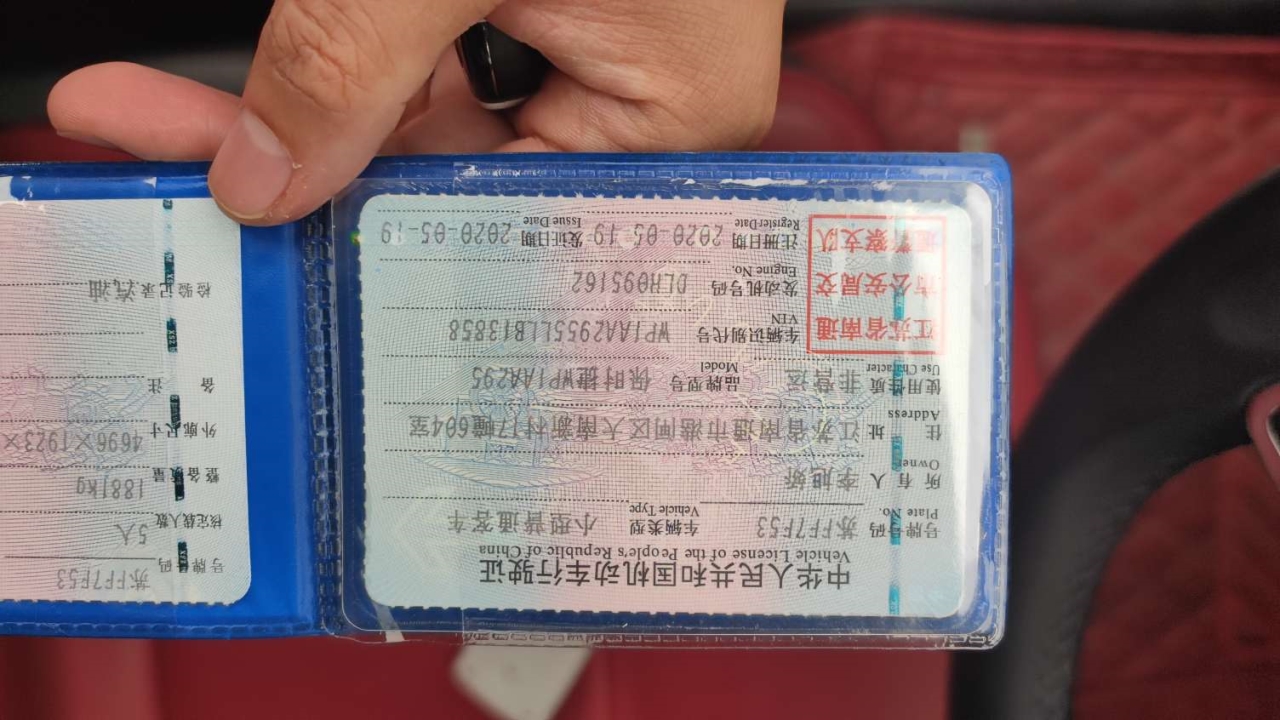 中华人民共和国机动车行驶证
Vehicle License of the People's Republic of China
号牌号码 苏FF7F53 车辆类型 小型普通客车
Plate No. Vehicle Type
所有人 李旭娇
Owner
住址 江苏省南通市港闸区大南新村17幢604室
Address
使用性质 非营运 品牌型号 保时捷WP1AA295
Use Character Model
江苏省南通
市公安局交
通警察支队
车辆识别代号 WP1AA2955LLB13858
VIN
发动机号码 DLH095162
Engine No.
注册日期 2020-05-19 发证日期 2020-05-19
Register Date Issue Date
号牌号码 苏FF7F53
核定载人数 5人
整备质量 1881kg
外廓尺寸 4696×1923×
备注
检验记录 汽油